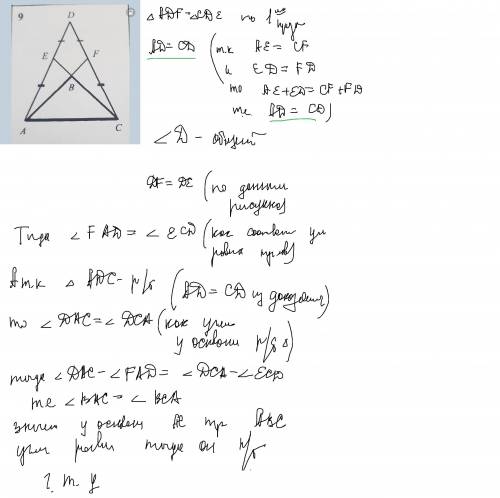 9
D
E
F
B
A
C
△ADF=△CDE по 1 пр
AD=CD (т.к AE = CF
и ED = FD
то AE+ED = CF+FD
те AD = CD)
∠D - общий
DF = DE (по данным
рисунка)
Тогда ∠FAD = ∠ECD (как соответ уг
равн треуг)
А тк △ADC - р/б (AD = CD из доказан)
то ∠DAC = ∠DCA (как углы
у основан р/б △)
тогда ∠DAC - ∠FAD = ∠DCA - ∠ECD
те ∠BAC = ∠BCA
значит у основан AC тр ABC
углы равны тогда он р/б
ч. т. д